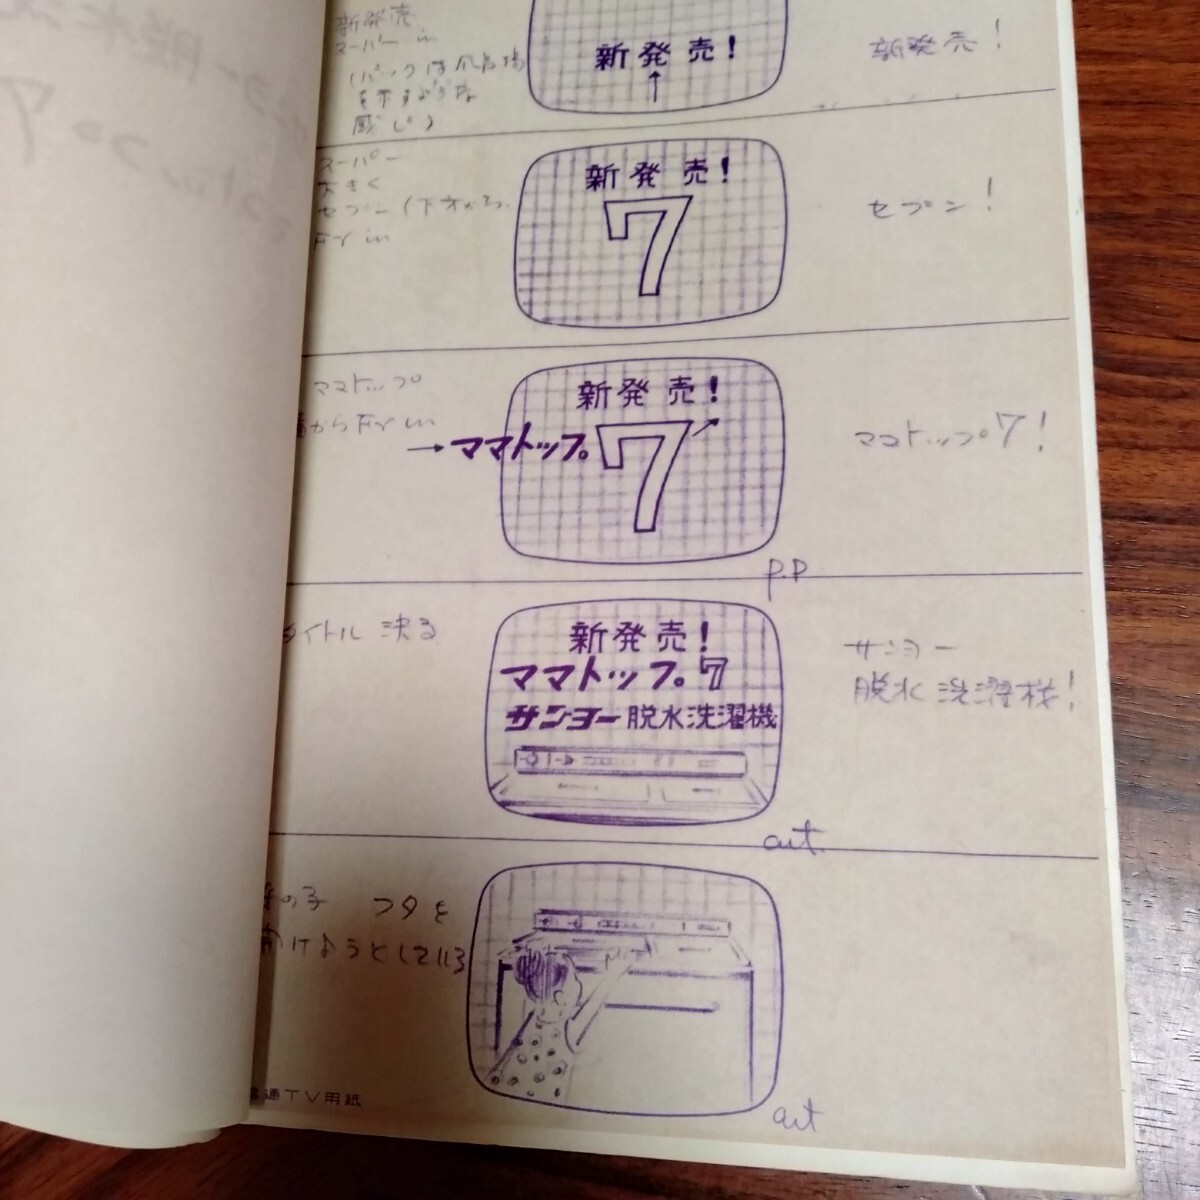 新発売
スーパー in
(バックは風呂場
を示すような
感じ)
新発売!
新発売!
スーパー
大きく
セブン (下方から
FR in
新発売!
7
セブン!
ママトップ
からFR in
→ママトップ
新発売!
7
ママトップ7!
P.P
タイトル 決る
新発売!
ママトップ7
サンヨー脱水洗濯機
サンヨー
脱水洗濯機!
cut.
の子 フタを
開けようとしている
cut
電通TV用紙